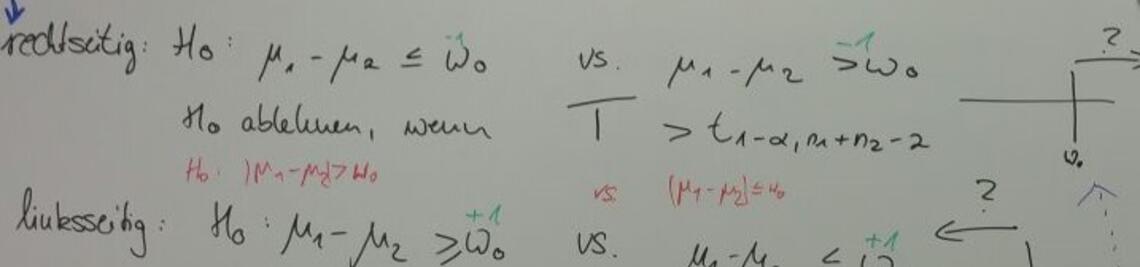 rechtseitig: H₀: μ₁ - μ₂ ≤ ω₀ -1 vs. μ₁ - μ₂ > ω₀ -1 ?
H₀ ablehnen, wenn T > t₁₋α, n₁+n₂-2
ω₀
H₀: |μ₁ - μ₂| > ω₀ vs. |μ₁ - μ₂| ≤ ω₀
linksseitig: H₀: μ₁ - μ₂ ≥ ω₀ +1 vs. μ₁ - μ₂ < +1 ?